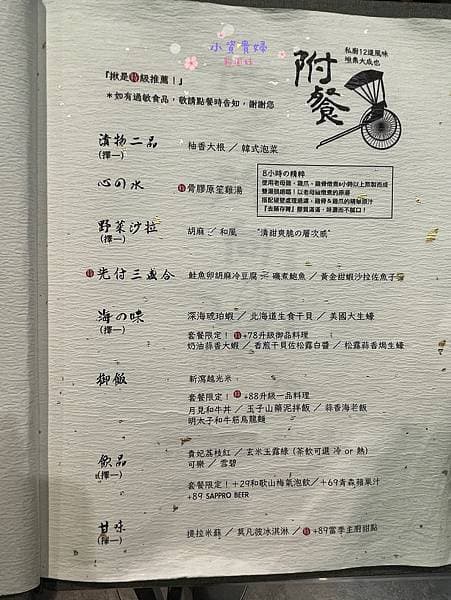 小資貴婦
私廚12道風味
附餐
『揪是特級推薦！』
＊如有過敏食品，敬請點餐時告知，謝謝您
漬物二品
(擇一)
柚香大根／韓式泡菜
心の水
特骨膠原笙雞湯
8小時の精粹
野菜沙拉
(擇一)
胡麻／和風 "清甜爽脆の層次感"
特先付三盛合
鮭魚卵胡麻冷豆腐／磯煮鮑魚／黃金甜蝦沙拉佐魚子醬
海の味
(擇一)
深海琥珀蝦／北海道生食干貝／美國大生蠔
套餐限定！特+78升級御品料理
奶油蒜香大蝦／香煎干貝佐松露白醬／松露蒜香焗生蠔
御飯
新瀉越光米
套餐限定！特+88升級一品料理
月見和牛丼／玉子山藥泥拌飯／蒜香海老飯
明太子和牛筋烏龍麵
飲品
(擇一)
貴妃荔枝紅／玄米玉露綠 (茶飲可選 冷 or 熱)
可樂／雪碧
套餐限定！+29和歌山梅氣泡飲／+69青森蘋果汁
+89 SAPPRO BEER
甘味
(擇一)
提拉米蘇／莫凡彼冰淇淋／特+89當季主廚甜點